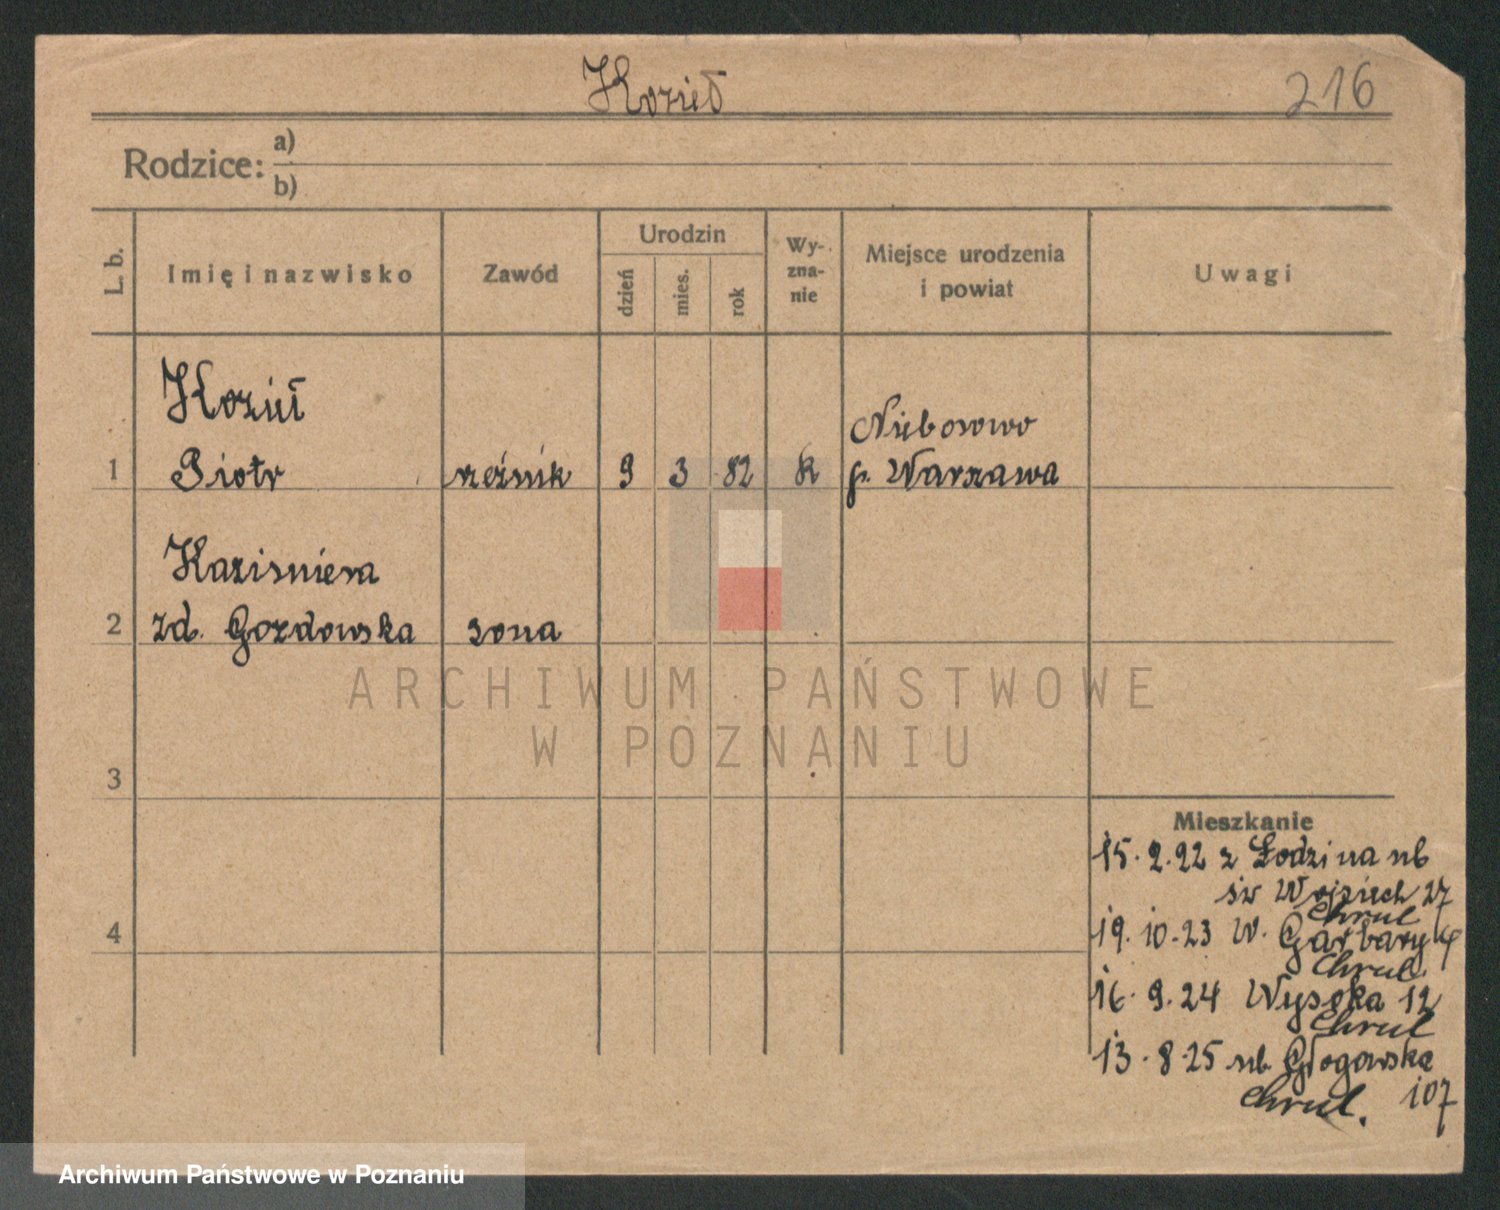 Kozieł
216
Rodzice: a)
b)
L. b.
Imię i nazwisko
Zawód
Urodzin
dzień
mies.
rok
Wy-
zna-
nie
Miejsce urodzenia
i powiat
Uwagi
Kozieł
Nieborowo
1 Piotr rzeźnik 9 3 82 K p. Warszawa
Kazimiera
2 zd. Gozdowska żona
ARCHIWUM PAŃSTWOWE
W POZNANIU
3
4
Mieszkanie
15.2.22 z Łodzi na ub
św Wojciech 27
Chrul
19.10.23 W. Garbary
Chrul.
16.9.24 Wysoka 12
Chrul
13.8.25 ub. Głogowska
107
Chrul.
Archiwum Państwowe w Poznaniu